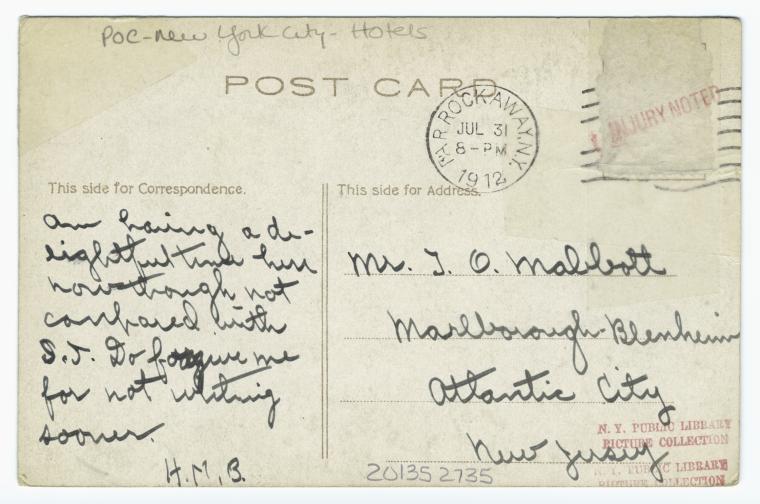 POC-New York City-Hotels
POST CARD
FAR ROCKAWAY, N.Y.
JUL 31
8-PM
1912
INJURY NOTED
This side for Correspondence.
Am having a de-
lightful time here
now though not
compared with
S.J. Do forgive me
for not writing
sooner.
H.M.B.
This side for Address.
Mr. T. O. Mabbott
Marlborough-Blenheim
Atlantic City
New Jersey
N. Y. PUBLIC LIBRARY
PICTURE COLLECTION
N. Y. PUBLIC LIBRARY
PICTURE COLLECTION
201352735